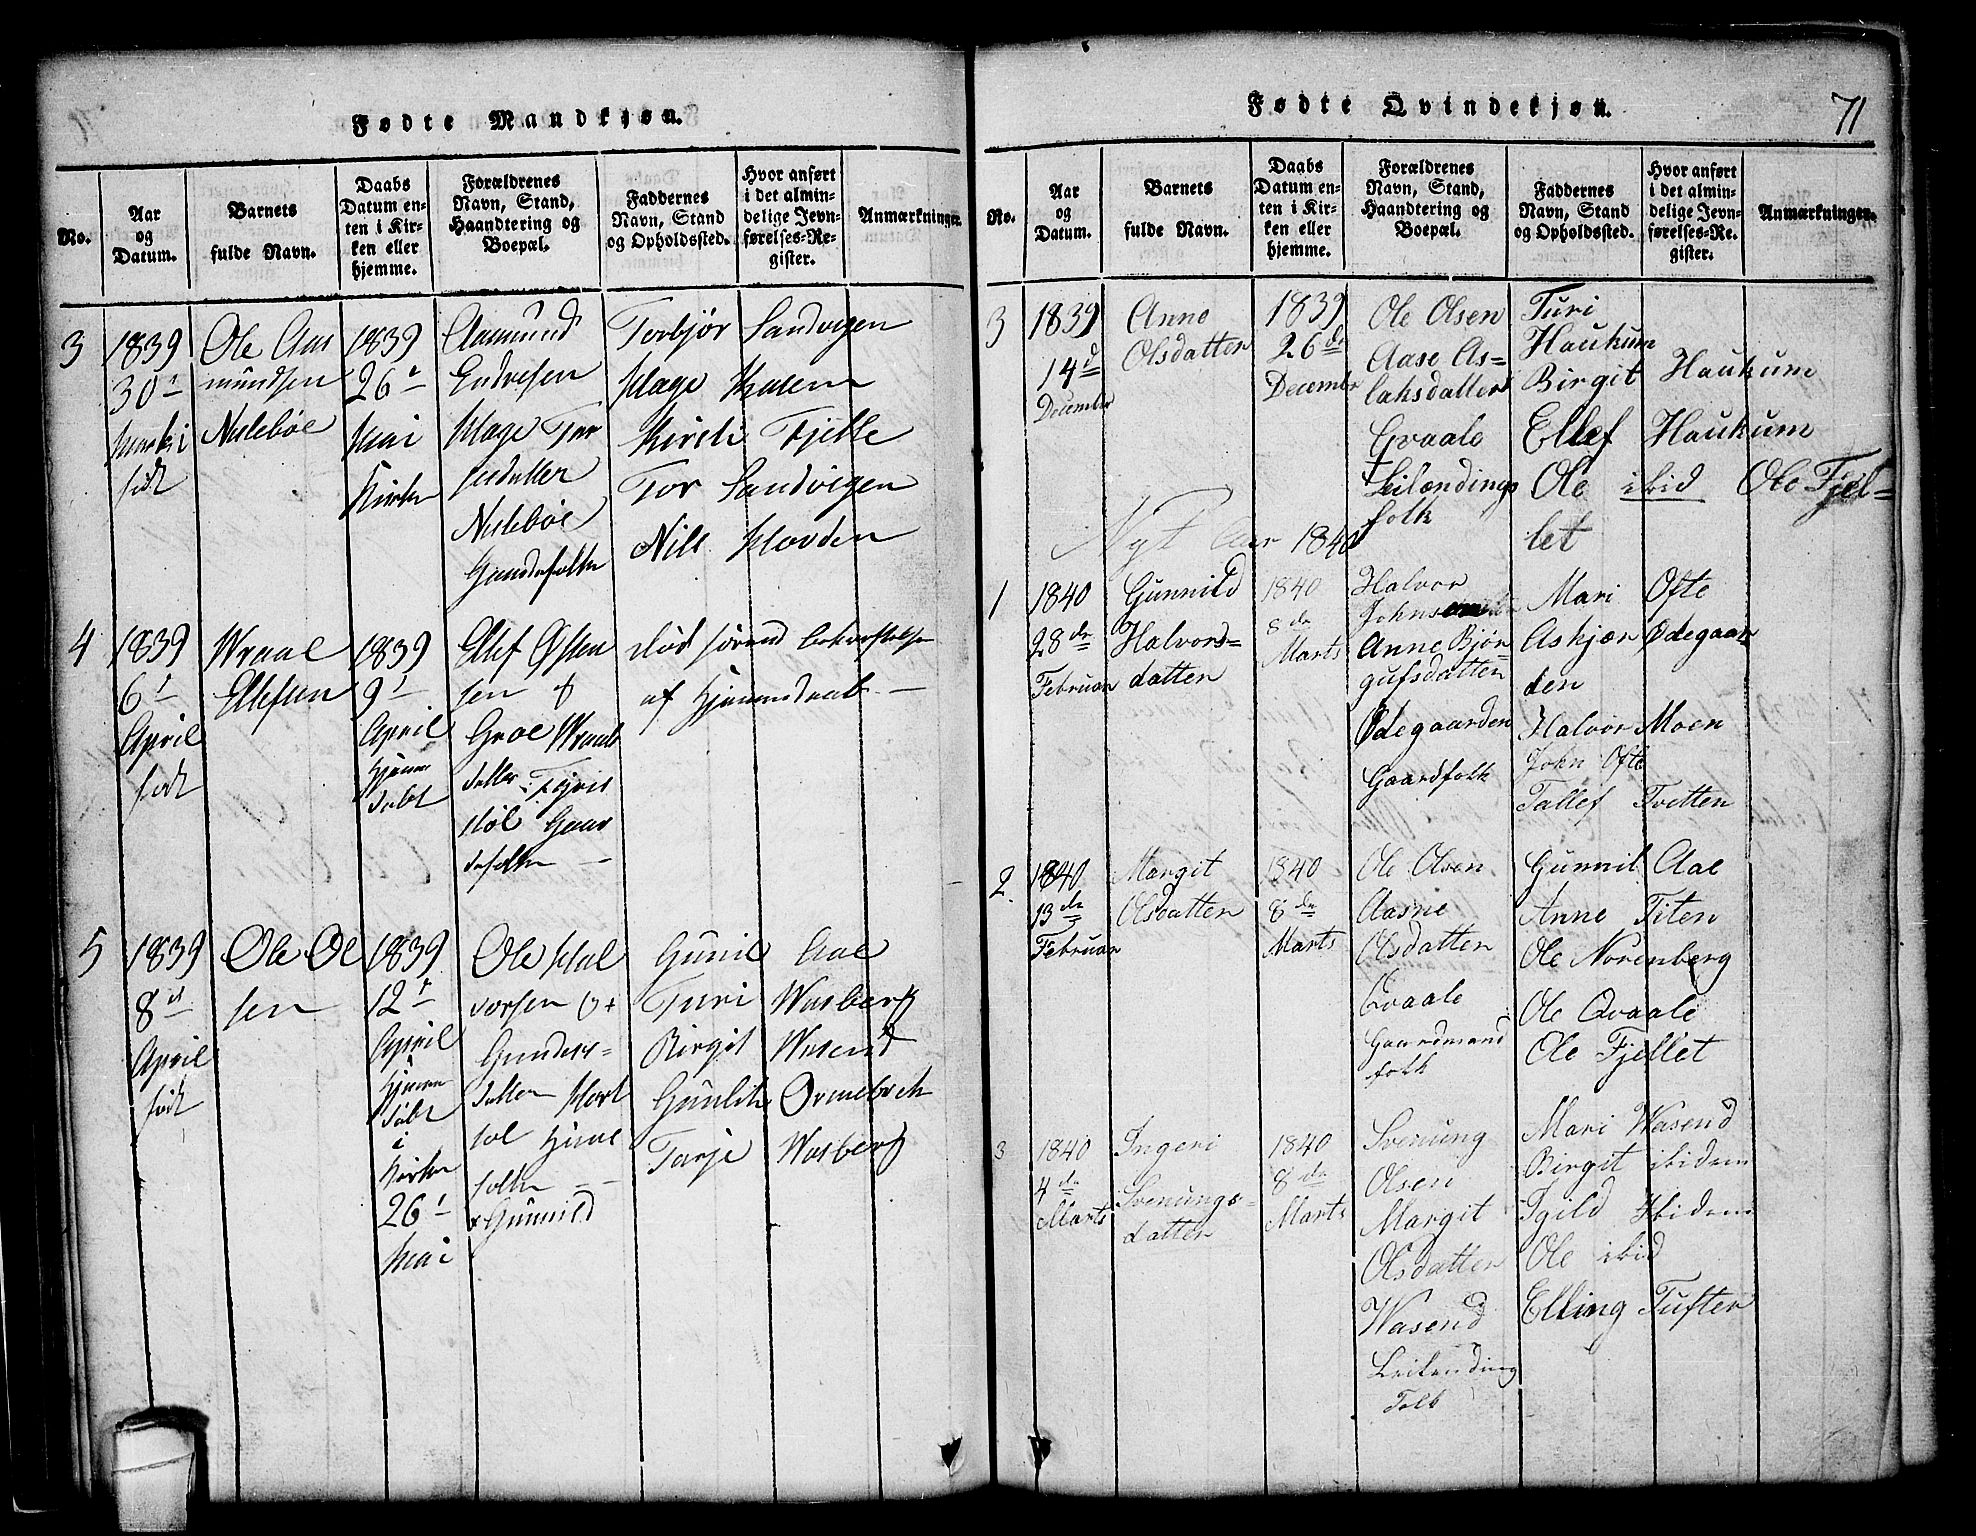 Fødte Mandkjøn.
No.
Aar
og
Datum.
Barnets
fulde Navn.
Daabs
Datum en-
ten i Kir-
ken eller
hjemme.
Forældrenes
Navn, Stand,
Haandtering og
Boepæl.
Faddernes
Navn, Stand
og Opholdssted.
Hvor anført
i det almin-
delige Jevn-
førelses-Re-
gister.
Anmærkninger.
3
1839
30
født
Ole Aas
mundsen
Nuleböe
1839
26
Mai
Kirken
Aasmund
Endresen
Tor
datter
Nuleböe
Gaardefolken
Torbjør Sandvigen
Kirsti Fjelle
Tor Sandvigen
Nils Hovden
4
1839
6
April
født
Wraal
Ellefsen
1839
9
April
Hjemme
døbt
Ellef Østen
sen &
Groe Wraals
datter
støl Gaar
defolken —
død førend bekræftelse
af Hjemmedaab —
5
1839
8
April
født
Ole Ol
sen
1839
12
April
Hjemme
døbt
i
Kirken
26
Mai
Ole Hal
vorsen
Gunders=
datter
folken — —
Gunnild
Gunil Aae
Turi Wasberg
Birgit Wasend
Ormebrek
Tarje Wasberg
Fødte Qvindekjøn.
71
No.
Aar
og
Datum.
Barnets
fulde Navn.
Daabs
Datum en-
ten i Kir-
ken eller
hjemme.
Forældrenes
Navn, Stand,
Haandtering og
Boepæl.
Faddernes
Navn, Stand
og Opholdssted.
Hvor anført
i det almin-
delige Jevn-
førelses-Re-
gister.
Anmærkninger.
3
1839
14d
December
Anne
Olsdatter
1839
26de
December
Ole Olsen
Aase As-
laksdatter
Qvaale
Leilændings
folk
Turi
Haukum
Birgit Haukum
Ellef Haukum
Ole ibid Ole Fjel=
let
Nyt Aar 1840
1
1840
28de
Februar
Gunnild
Halvors-
datter
1840
8de
Marts
Halvor
Johnsen
Anne Bjør
gufsdatter
Ødegaarden
Gaardfolk
Mari Ofte
Askjær Ødegaar
den
Halvor Moen
John Ofte
Tallef Tvetten
2.
1840
13de
Februar
Margit
Olsdatter
1840
8de
Marts
Ole Olsen
Aasne
Olsdatter
Qvaale
Gaardmand
folk
Gunnil Aae
Anne Titen
Ole Norenberg
Ole Qvaale
Ole Fjellet
3
1840
4de
Marts
Ingeri
Svenungs-
datter
1840
8de
Marts
Svenung
Olsen
Margit
Olsdatter
Wasend
Leilending
Folk
Mari Wasend
Birgit ibidem
Igild Ibidem
Ole ibid
Elling Tuften